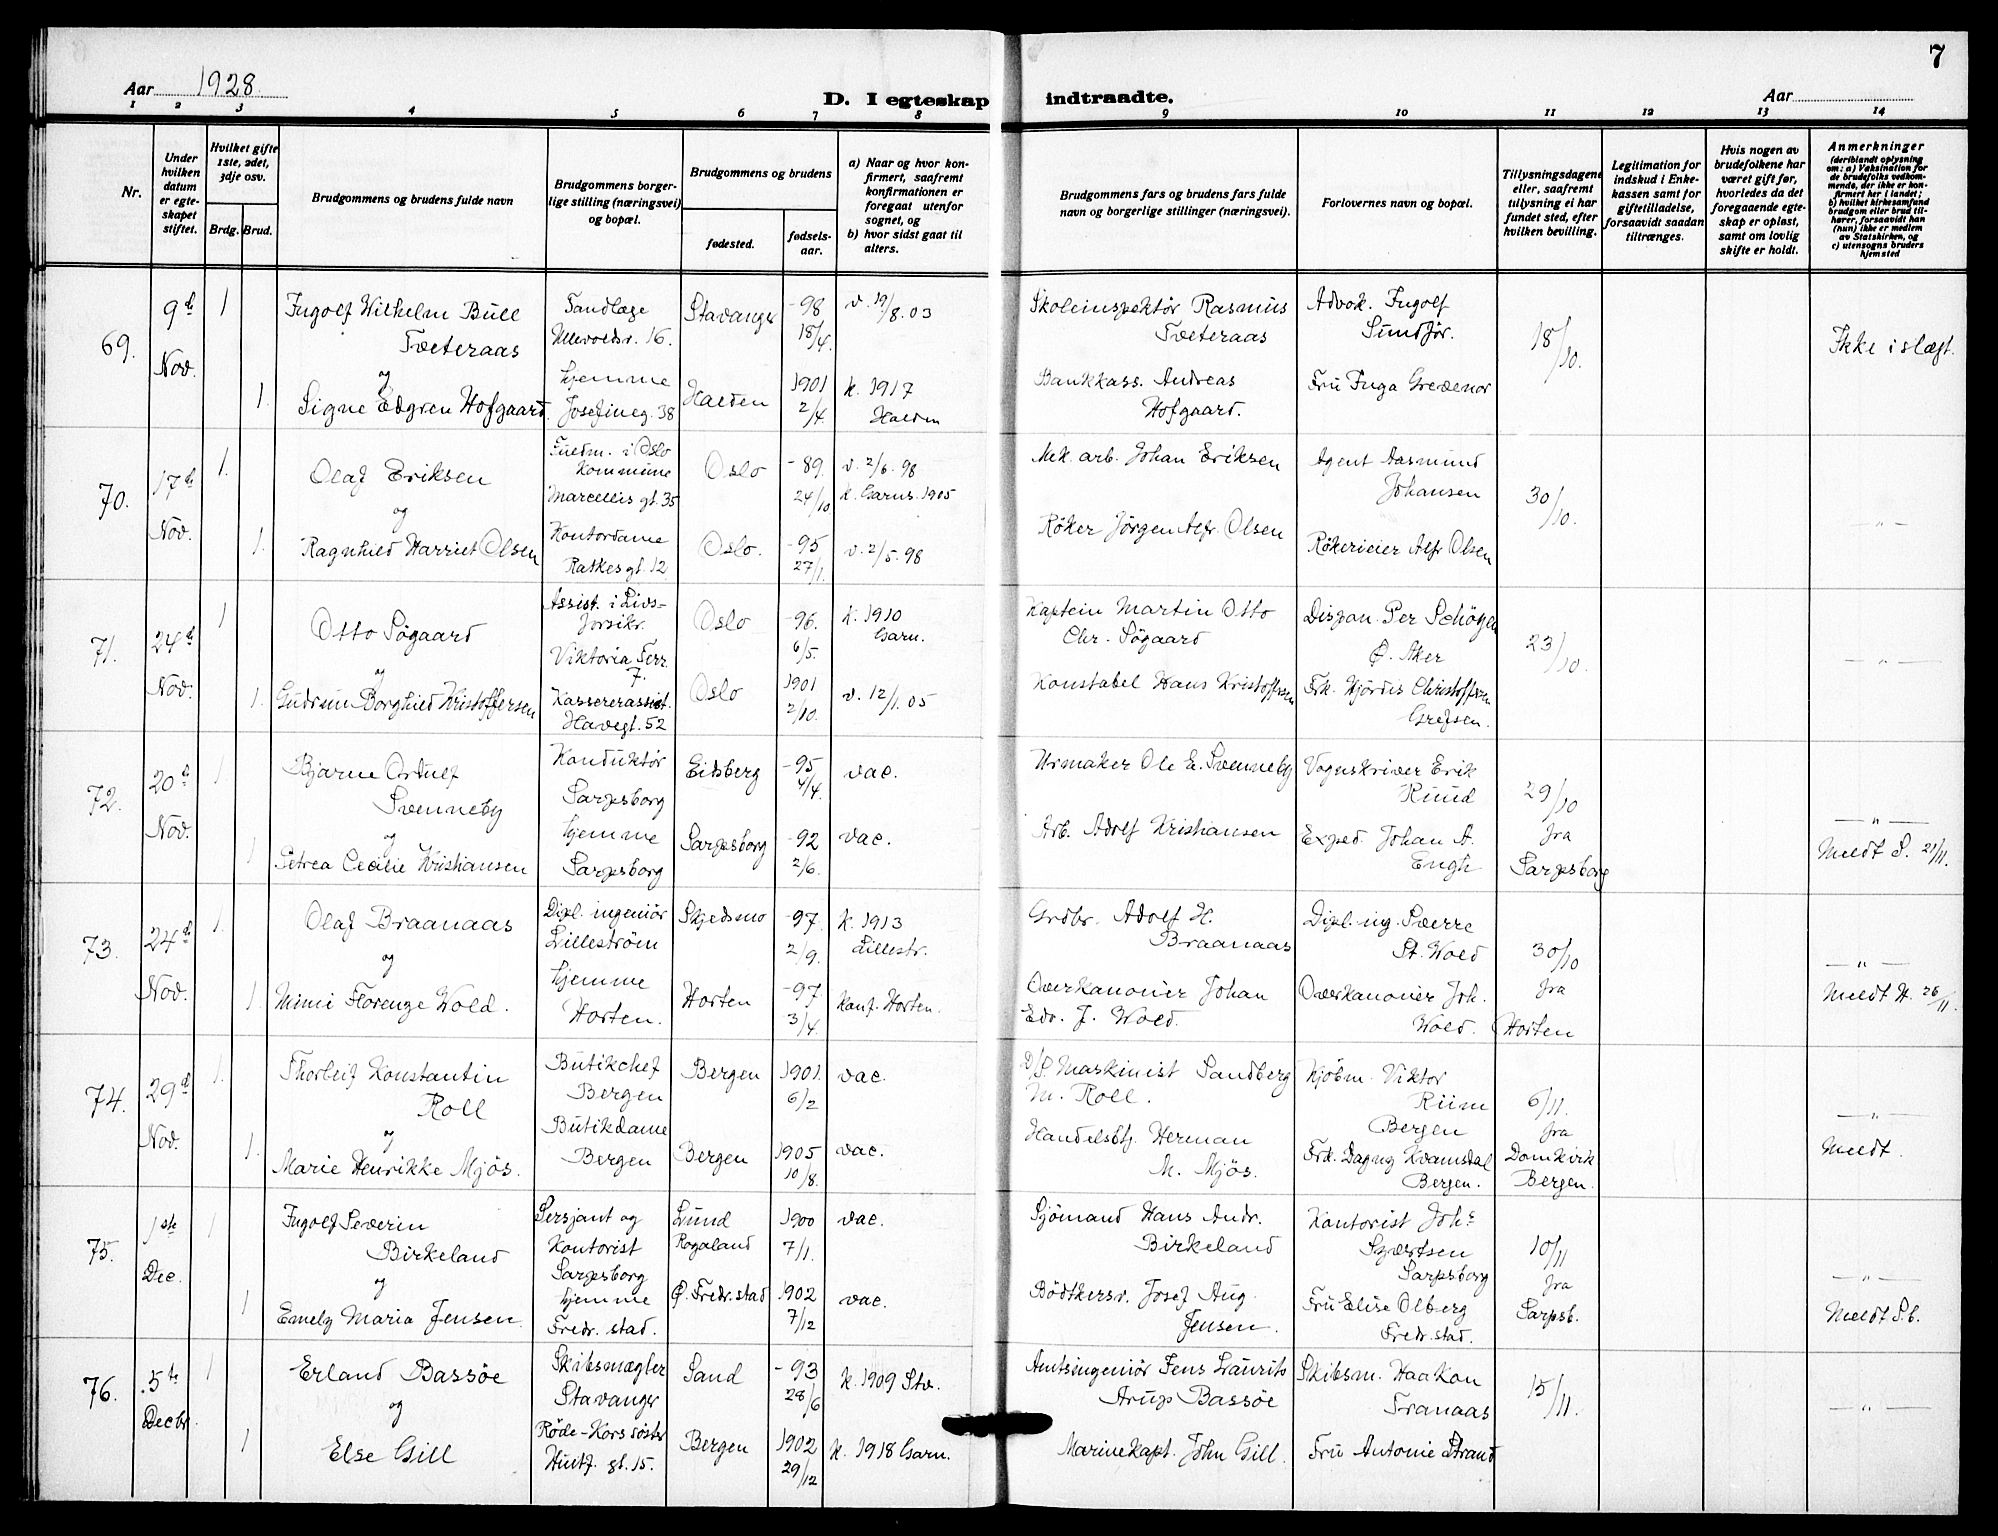 7
Aar 1928.
D. I egteskap indtraadte.
Aar
1 2 3 4 5 6 7 8 9 10 11 12 13 14
Nr.
Under hvilken datum er egteskapet stiftet.
Hvilket gifte 1ste, 2det, 3dje osv.
Brdg. Brud.
Brudgommens og brudens fulde navn
Brudgommens borgerlige stilling (næringsvei) og bopæl.
Brudgommens og brudens
fødested.
fødselsaar.
a) Naar og hvor konfirmert, saafremt konfirmationen er foregaat utenfor sognet, og
b) hvor sidst gaat til alters.
Brudgommens fars og brudens fars fulde navn og borgerlige stillinger (næringsvei).
Forlovernes navn og bopæl.
Tillysningsdagene eller, saafremt tillysning ei har fundet sted, efter hvilken bevilling.
Legitimation for indskud i Enkekassen samt for giftetilladelse, forsaavidt saadan tiltrænges.
Hvis nogen av brudefolkene har været gift før, hvorledes da det foregaaende egteskap er opløst, samt om lovlig skifte er holdt.
Anmerkninger
(deriblandt oplysning om: a) Vaksination for de brudefolks vedkommende, der ikke er konfirmert her i landet; b) hvilket kirkesamfund brudgom eller brud tilhører, forsaavidt han (hun) ikke er medlem av Statskirken, og c) utensogns bruders hjemsted
69.
9d Nov.
1
Ingolf Wilhelm Bull
Tveteraas
og
1.
Signe Edgren Hofgaard.
Tandlæge
Ullevoldsv. 16.
hjemme
Josefineg. 38
Stavanger
Halden
-98
18/4.
1901
2/4.
v. 19/8. 03
k. 1917
Halden
Skoleinspektør Rasmus
Tveteraas
Bankkass. Andreas
Hofgaard.
Advok. Ingolf
Sundfør.
Fru Inga Gredenor
18/10.
Ikke i slægt.
70.
17d Nov.
1.
Olaf Eriksen
og
1.
Ragnhild Harriet Olsen
Fuldm. i Oslo
Kommune
Marcellis gt. 35
Kontordame
Ratkes gt. 12
Oslo
Oslo.
-89.
24/10
-95
27/1.
v. 2/6. 98
k. Garns. 1905
v. 2/5. 98
Mek. arb. Johan Eriksen
Røker Jörgen Alfr. Olsen
Agent Aasmund
Johansen
Røkerieier Alfr. Olsen
30/10.
— " —
71.
24d Nov.
1
Otto Søgaard
og
1.
Gudrun Borghild Kristoffersen
Assist. i Livs-
forsikr.
Viktoria Terr.
7.
Kassererassist.
Havegt. 52
Oslo
Oslo
-96.
6/5.
1901
2/10.
k. 1910
Garn.
v. 12/1. 05
Kaptein Martin Otto
Chr. Søgaard
Konstabel Hans Kristoffersen
Dispon. Per Schöyen
Ø. Aker
Frk. Hjördis Christoffersen
Grefsen.
23/10.
— " —
72.
20d Nov.
1
Bjarne Ordulf
Svenneby
og
1
Petrea Cecilie Kristiansen
Konduktør
Sarpsborg
hjemme
Sarpsborg
Eidsberg
Sarpsborg
-95
4/4.
-92
2/6.
vac.
vac.
Urmaker Ole E. Svenneby
Arb. Adolf Kristiansen
Vognskriver Erik
Ruud
Exped. Johan A.
Engh
29/10
fra
Sarpsborg
— " —
Meldt S. 21/11.
73.
24d Nov.
1.
Olaf Braanaas
og
1.
Mimi Florenze Wold.
Dipl. ingeniør
Lilleström
hjemme
Horten.
Skjedsmo
Horten
-97.
2/9.
-97
3/4.
k. 1913
Lillestr.
Konf. Horten.
Grdbr. Adolf H.
Braanaas
Overkanoner Johan
Edv. J. Wold.
Dipl. ing. Sverre
St. Wold
Overkanoner Joh.
Wold.
30/10
fra
Horten
— " —
Meldt H. 26/11.
74.
29d Nov.
1.
Thorleif Konstantin
Roll
og
1.
Marie Henrikke Mjøs.
Butikchef
Bergen
Butikdame
Bergen
Bergen
Bergen
1901.
6/2
1905
10/8.
vac.
vac.
D/S. Maskinist Sandberg
M. Roll.
Handelsbtj. Herman
M. Mjøs.
Kjøbm. Viktor
Riim
Bergen
Frk. Dagny Kvamsdal
Bergen.
6/11.
fra
Domkirk
Bergen.
— " —
Meldt.
75.
1ste Dec.
1
Ingolf Severin
Birkeland
og
1
Emely Maria Jensen.
Sersjant og
Kontorist
Sarpsborg
hjemme
Fredr. stad.
Lund
Rogaland
Ø. Fredr. stad
1900
7/1.
1902
7/12
vac.
vac.
Sjømand Hans Andr.
Birkeland
Bödtkersv. Josef Aug.
Jensen.
Kontorist Joh.
Syvertsen
Sarpsborg
Fru Elise Olberg
Fredr. stad.
10/11
fra
Sarpsb.
— " —
Meldt S.b.
76.
5te Decbr.
1
Erland Bassøe
og
1
Else Gill
Skibsmægler
Stavanger
Røde-Kors søster
Huitf. gt. 15.
Sand
Bergen
-93
28/6
1902
29/12
k. 1909 Stv.
k. 1918 Garn.
Amtsingeniør Jens Laurits
Arup Bassøe
Marinekapt. John Gill.
Skibsm. Haakon
Tranaas
Fru Antonie Strand
15/11.
— " —